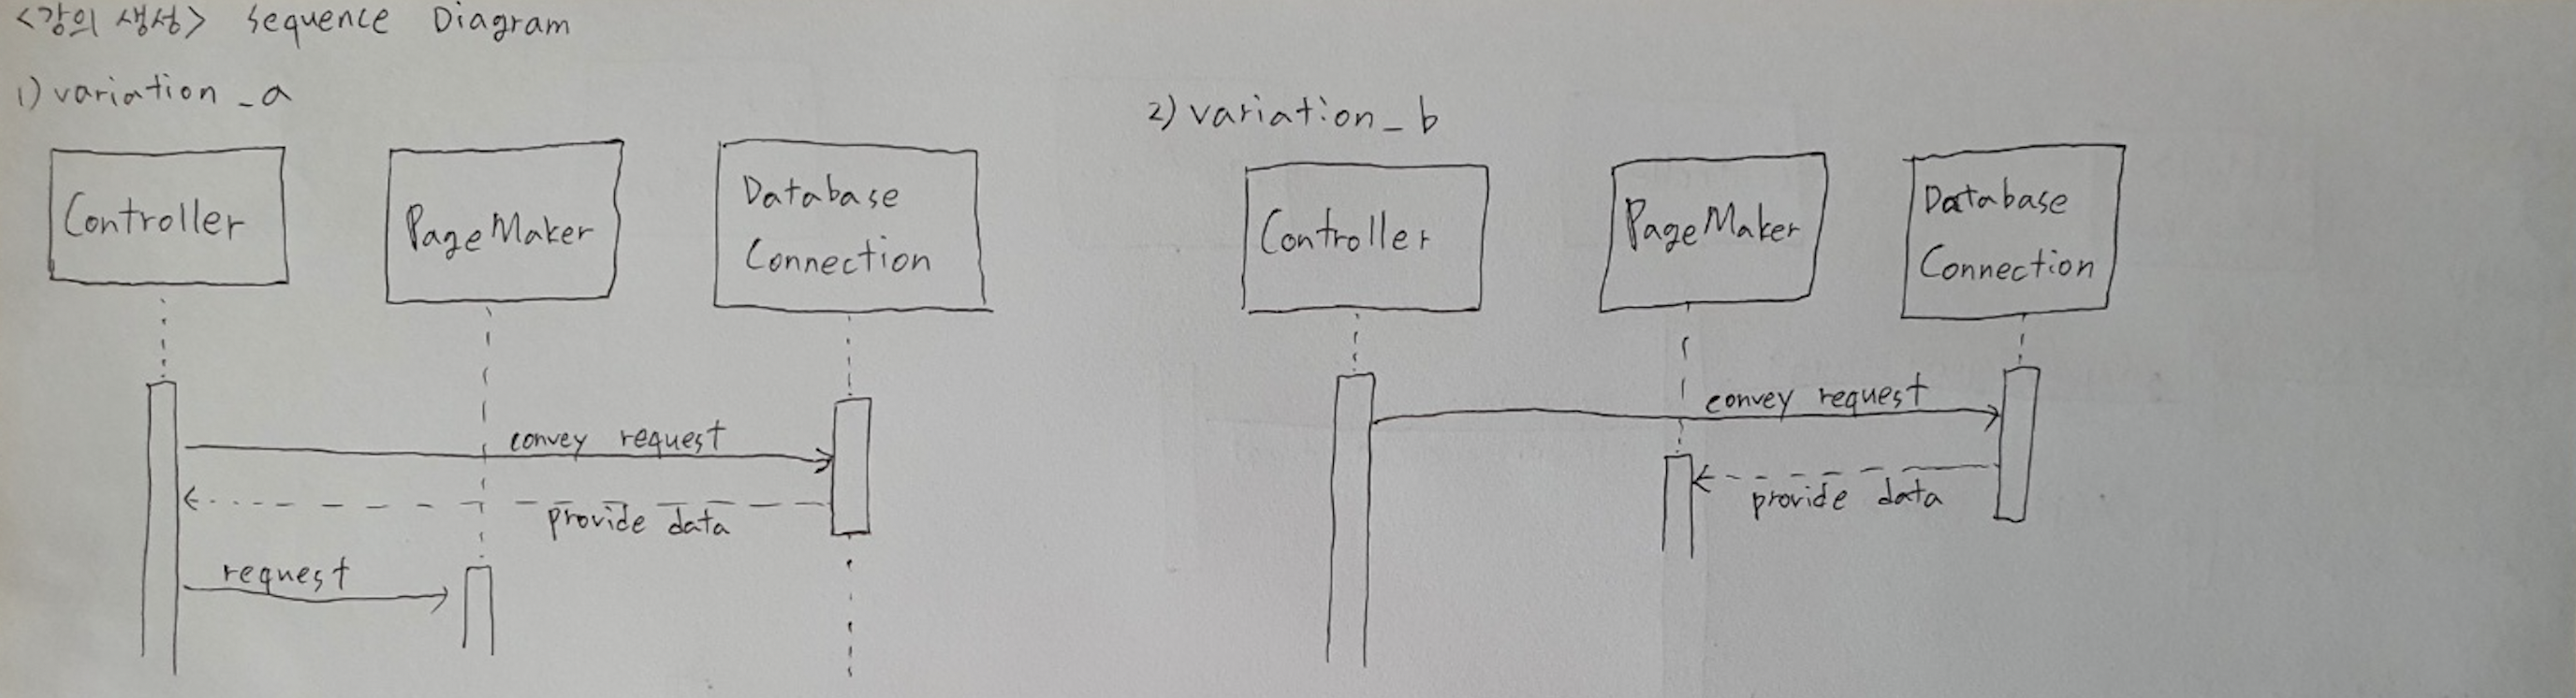 <강의 생성> Sequence Diagram
1) variation_a
Controller
PageMaker
Database
Connection
convey request
provide data
request
2) variation_b
Controller
PageMaker
Database
Connection
convey request
provide data